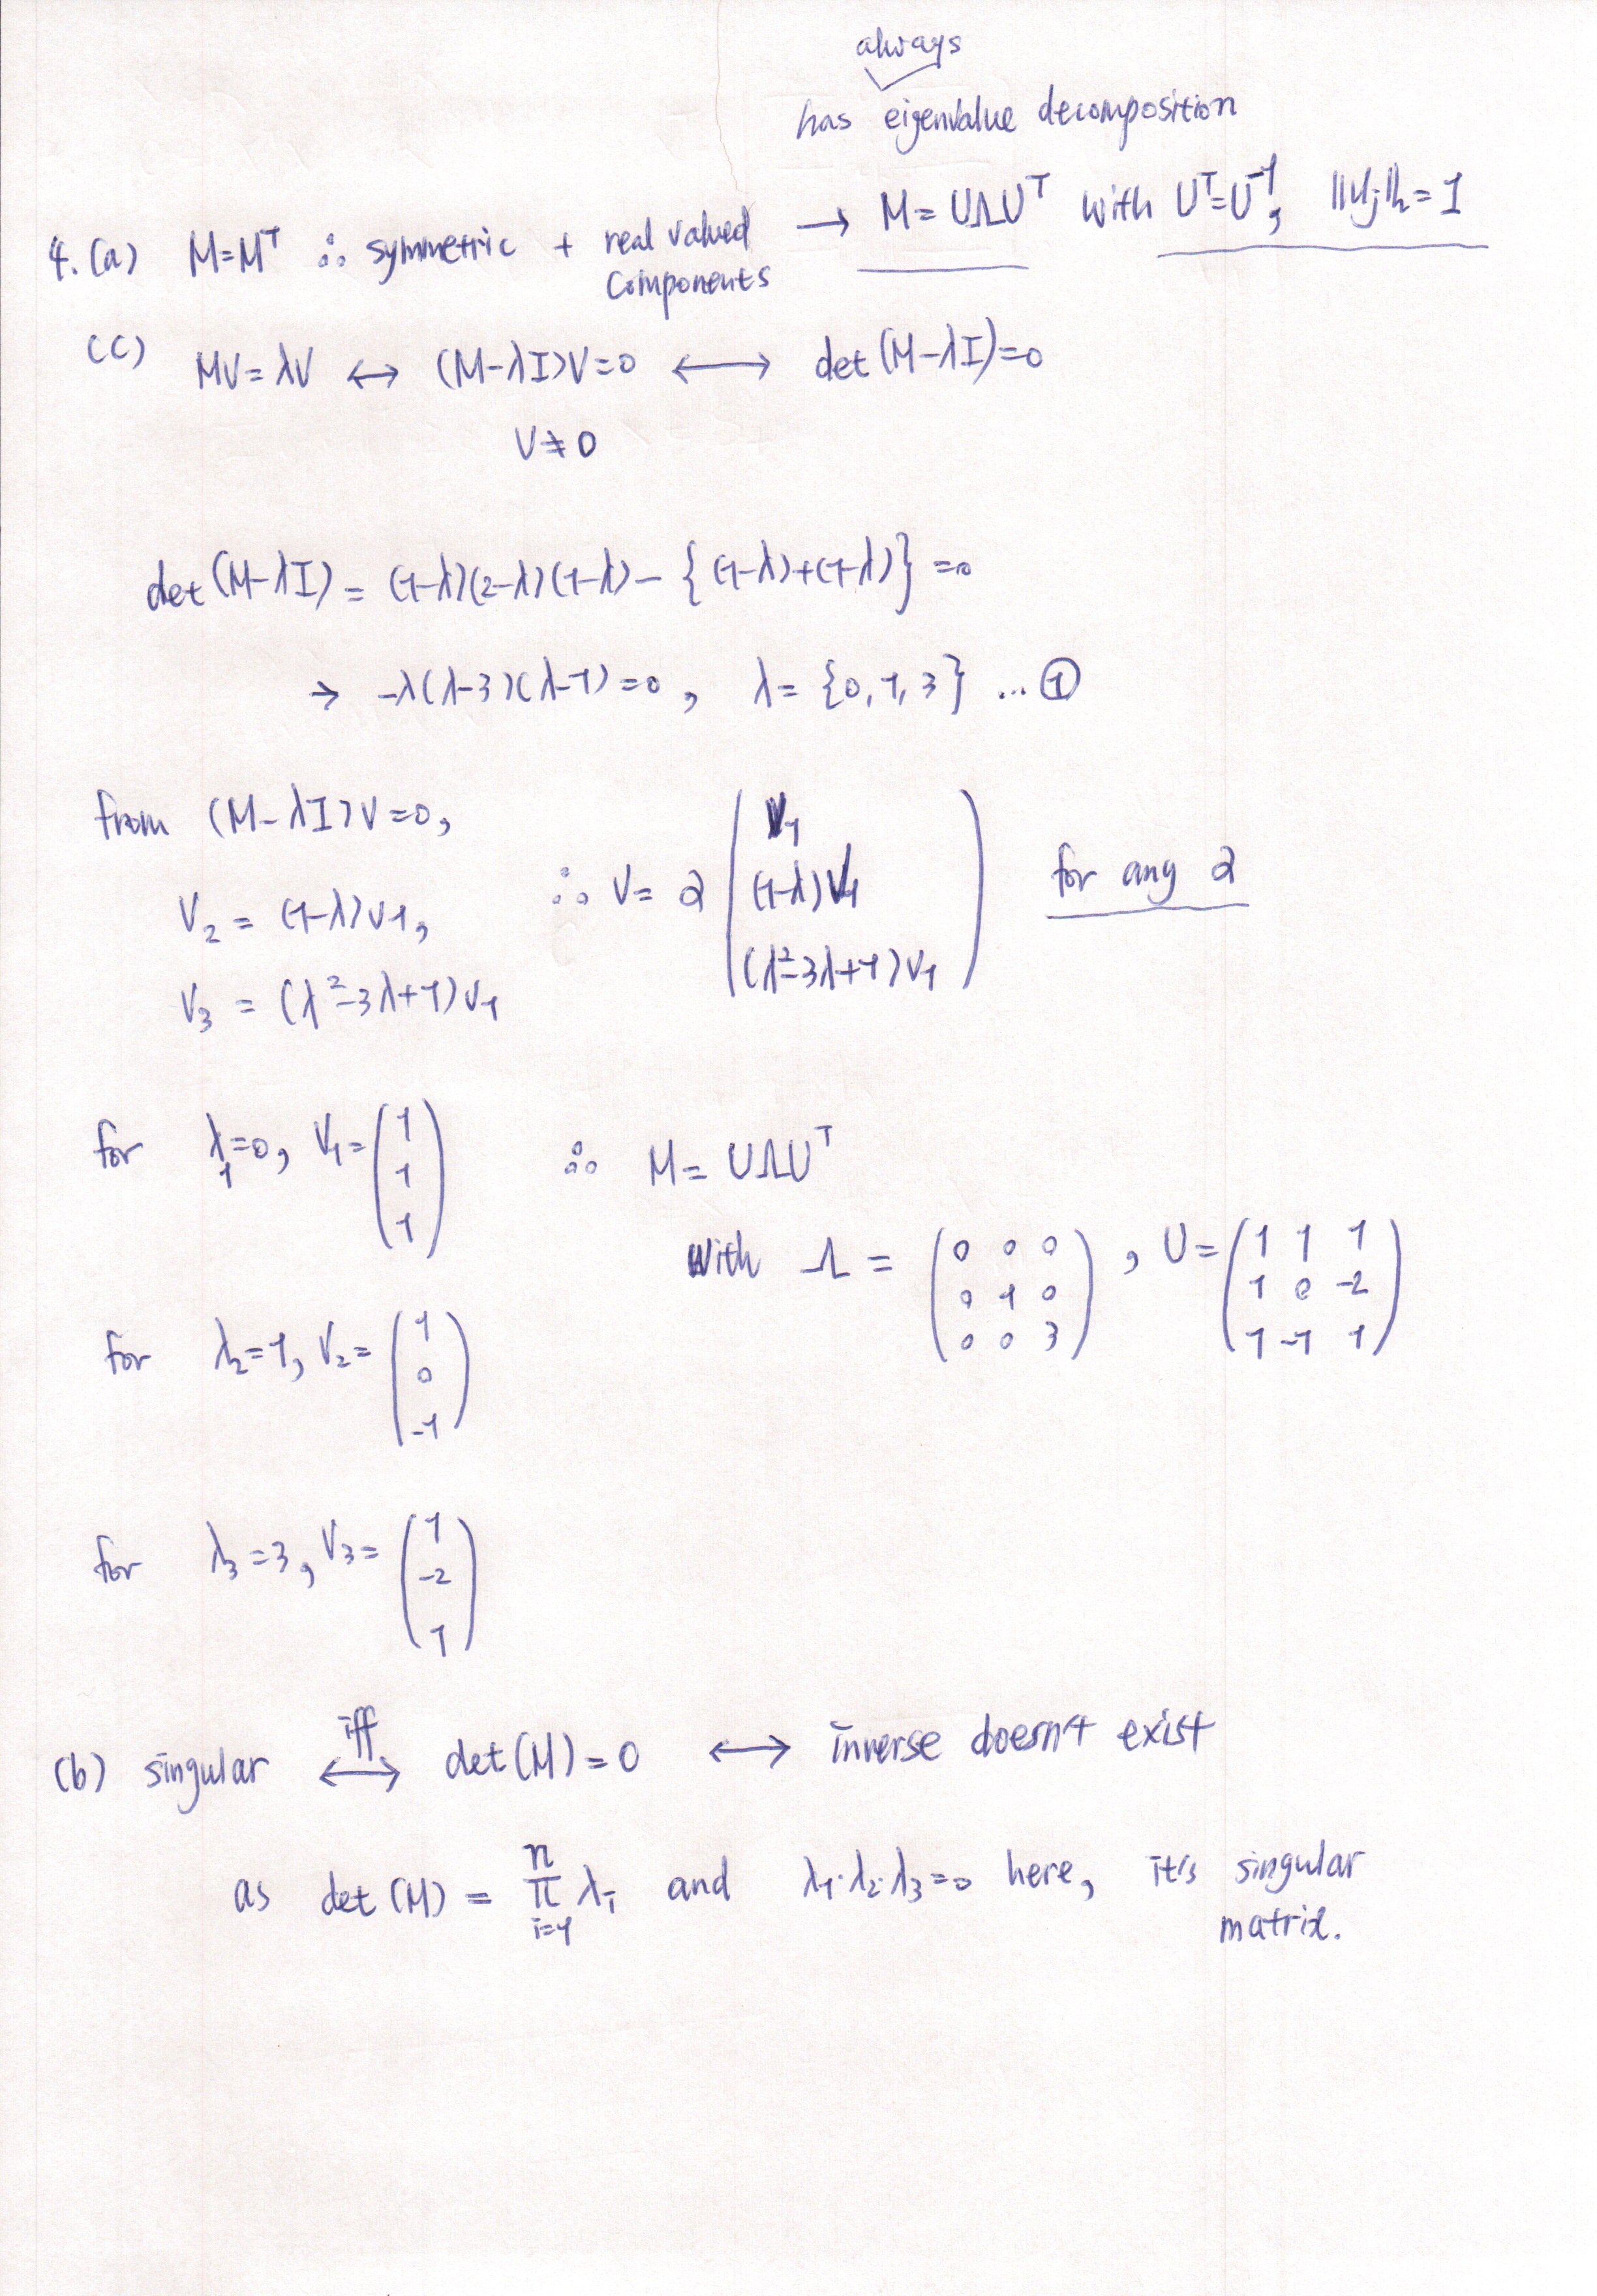 always
has eigenvalue decomposition
4. (a) M=Mᵀ ∴ symmetric + real valued components → M = UΛUᵀ with Uᵀ=U⁻¹, ||Uj||₂ = 1
(c) MV = λV ↔ (M-λI)V=0 ⟷ det(M-λI)=0
V≠0
det(M-λI) = (1-λ)(2-λ)(1-λ) - {(1-λ)+(1-λ)} =0
→ -λ(λ-3)(λ-1)=0, λ= {0,1,3} ... ①
from (M-λI)V=0,
V₂ = (1-λ)V1,
V₃ = (λ²-3λ+1)V1
∴ V= α (V1 (1-λ)V1 (λ²-3λ+1)V1) for any α
for λ1=0, V1= (1 1 1)
∴ M = UΛUᵀ
with Λ = (0 0 0
0 1 0
0 0 3), U= (1 1 1
1 0 -2
1 -1 1)
for λ₂=1, V₂= (1 0 -1)
for λ₃=3, V₃= (1 -2 1)
(b) singular iff ⟷ det(M)=0 ⟷ inverse doesn't exist
as det(M) = n π i=1 λi and λ1·λ2·λ3=0 here, it's singular
matrix.